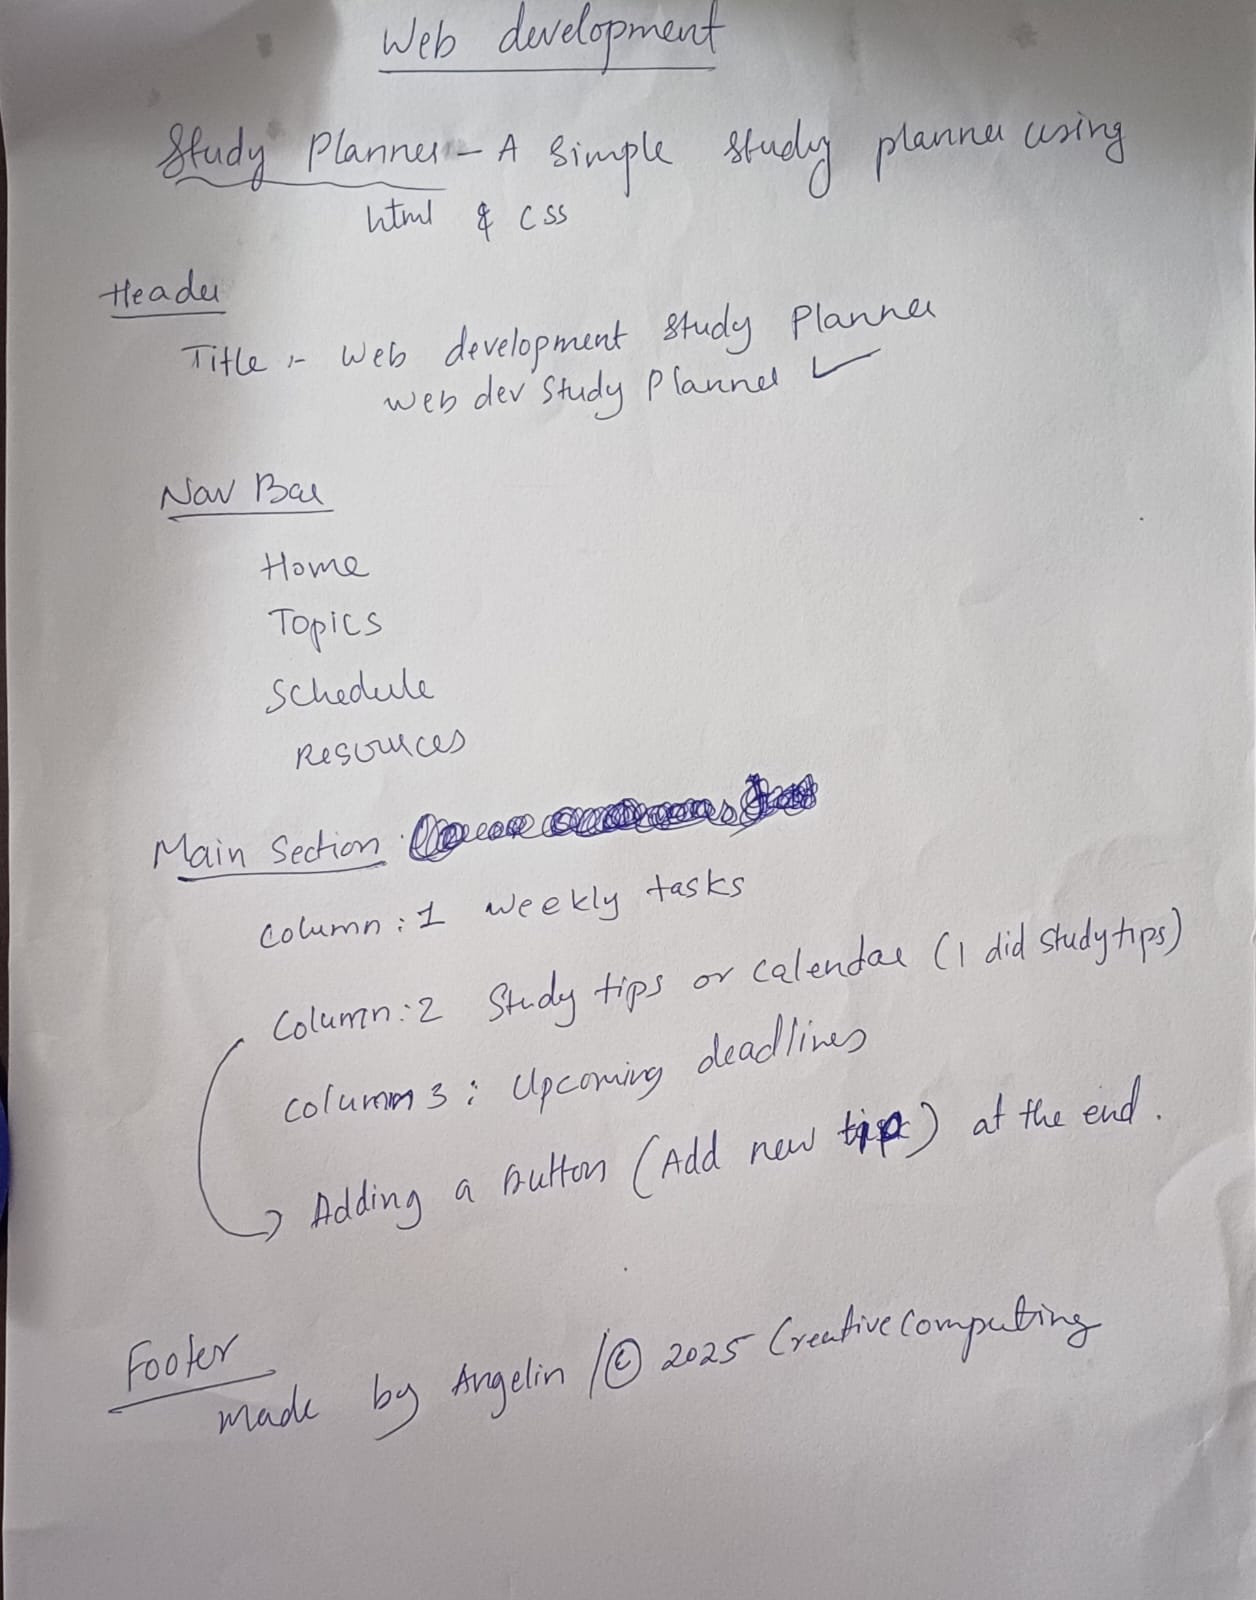 Web development
Study Planner - A Simple study planner using
html & css
Header
Title :- Web development study Planner
Web dev Study Planner ✓
Nav Bar
Home
Topics
Schedule
Resources
Main Section
column : 1 Weekly tasks
Column : 2 Study tips or calendar (I did study tips)
column 3 : Upcoming deadlines
Adding a button (Add new tip) at the end.
Footer
made by Angelin / © 2025 Creative Computing